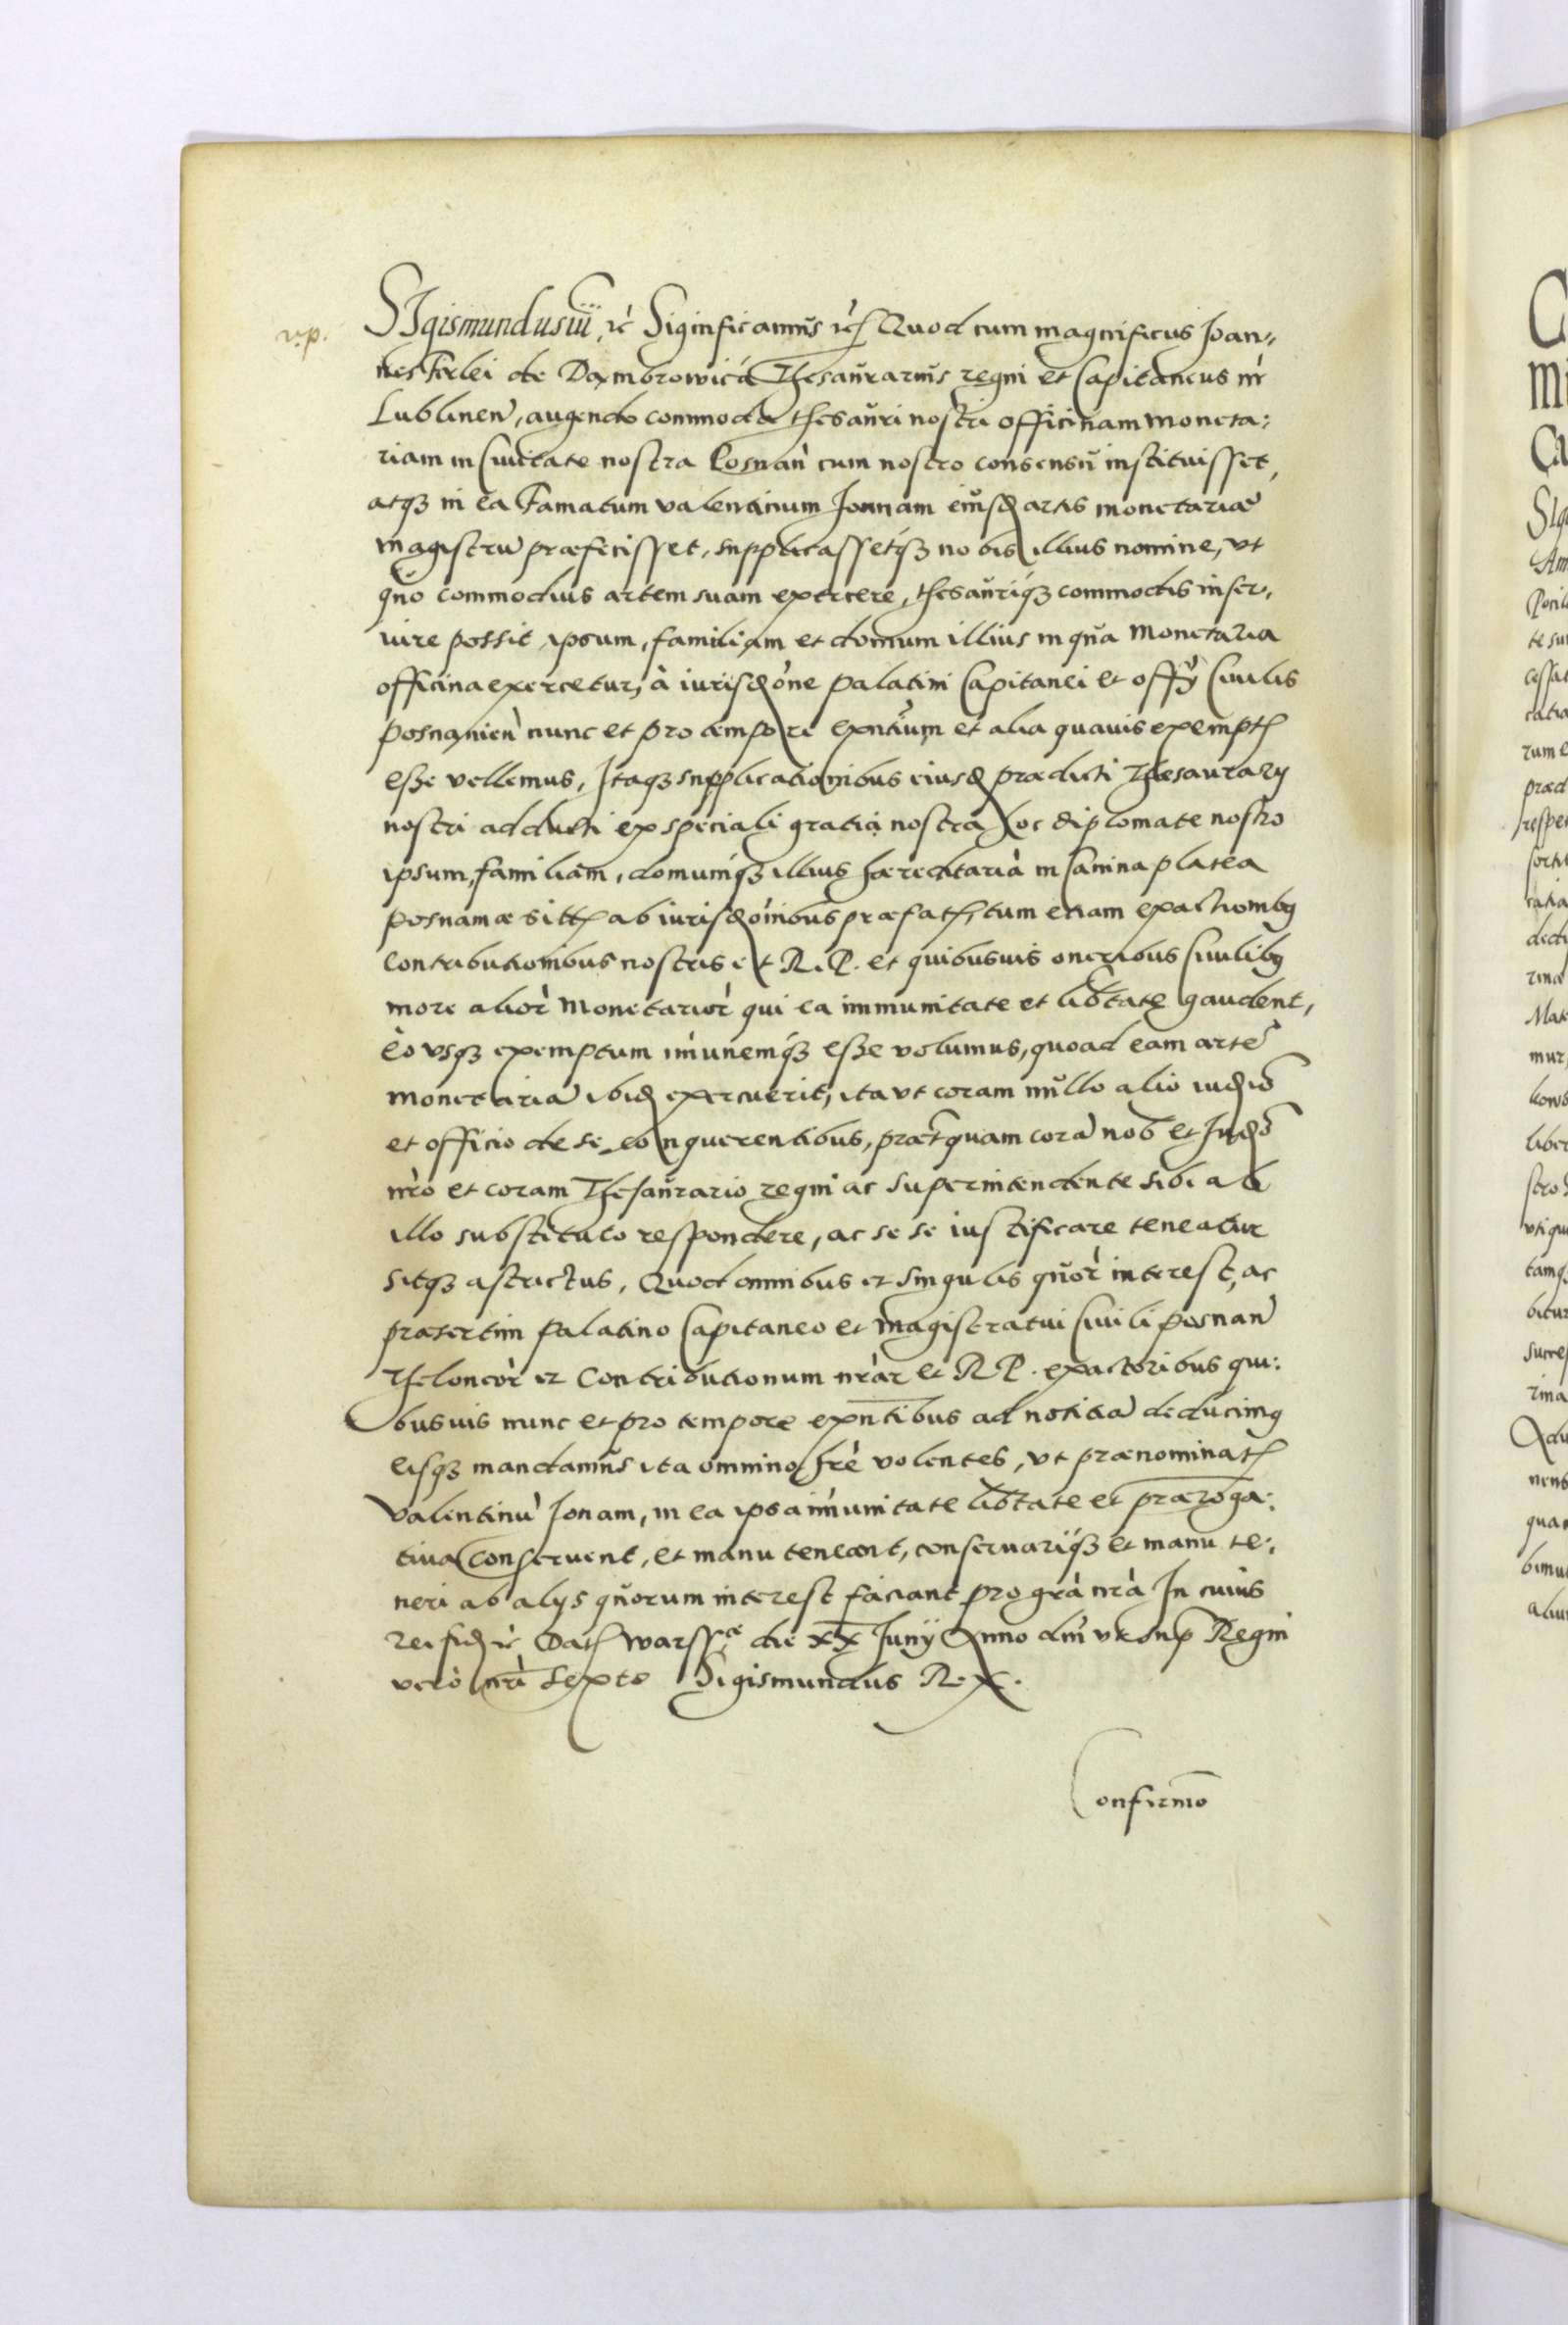 v.p.
SIgismundus iii, rc̀ Siginficamūs rc̀ Quod cum magnificus Joan„
nes Firlei de Dambrowicá Thesaūrariūs regni et Capitaneus nr̀
Lublinen̄, augendo commoda thesaūri nostri officinam moneta:
riam in Ciuitate nostra Posnan̄ cum nostro consensū instituisset,
atqꝫ in ea Famatum valentinum Jonnam eiūsd artis monetariæ
magistrū præfecisset, supplicassetqꝫ nobis illius nomine, vt
qūo commodius artem suam exercere, thesaūriqꝫ commodis inser„
uire possit ipsum, familiam et domum illius in qūa monetaria
officina exercetur, à iurisdōne Palatini Capitanei et offȳ Ciuilis
Posnanien̄ nunc et pro tempore exn̄tium et alia quauis exempt
esse vellemus, Itaqꝫ supplicationibus eiusd prædicti Thesaurarij
nostri adducti ex speciali gratia nostra hoc diplomate nostro
ipsum, familiam, domumqꝫ illius hæreditariā in Canina platea
Posnaniæ sitt ab iurisdōnibus præfat, tum etiam exactionibꝫ
contributionibus nostris et R. P. et quibusuis oneribus Ciuilibꝫ
more alior̀ monetarior̀ qui ea immunitate et lib̄tate gaudent,
eò vsqꝫ exemptum im̄unemqꝫ esse volumus, quoad eam artē
monetariā ibid exercuerit, ita vt coram nūllo alio iudiō
et officio de se conquerentibus, præt̄quam corā nob̄ et Judiō
nr̄o et coram Thesaūrario regni ac superintendente sibi ab
illo substituto respondere, ac se se iustificare teneatur
sitqꝫ astrictus, Quod omnibus et singulis qūor̀ interest, ac
præsertim Palatino Capitaneo et magistratui Ciuili Posnan̄
Theloneor̀ et Contributionum nr̄ar̀ et R P. exactoribus qui:
busuis nunc et pro tempore exn̄tibus ad notitiā deducimꝫ
eisqꝫ mandamūs ita omnino hr̄e volentes, vt prænominat
Valentinū Jonam, in ea ipsa im̄unitate lib̄tate et præroga:
tiua conseruent, et manu teneant, conseruariqꝫ et manu te:
neri ab alijs qūorum interest faciant pro gr̄a nr̄a In cuius
rei fid rc̀ Dat Warssæ die XX Junij Anno dn̄i vt sup Regni
vero nr̄i Sexto Sigismundus Rex.
Confirmō